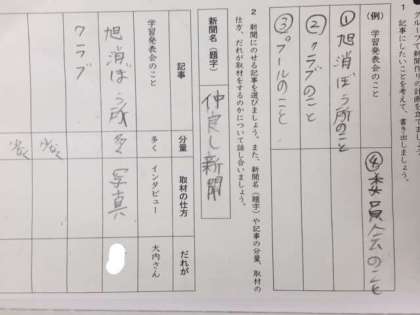 ループで新聞作りの計画を立てましょう。
1 記事にしたいことを考えて、書き出しましょう。
(例) 学習発表会のこと
①旭消ぼう所のこと
②クラブのこと
③プールのこと
④委員会のこと
2 新聞にのせる記事を選びましょう。また、新聞名(題字)や記事の分量、取材の
仕方、だれが取材をするのかについて話し合いましょう。
新聞名(題字)
仲良し新聞
記事 分量 取材の仕方 だれが
学習発表会のこと 多く インタビュー 大内さん
旭消ぼう所 多く 写真
クラブ 少なく
少なく